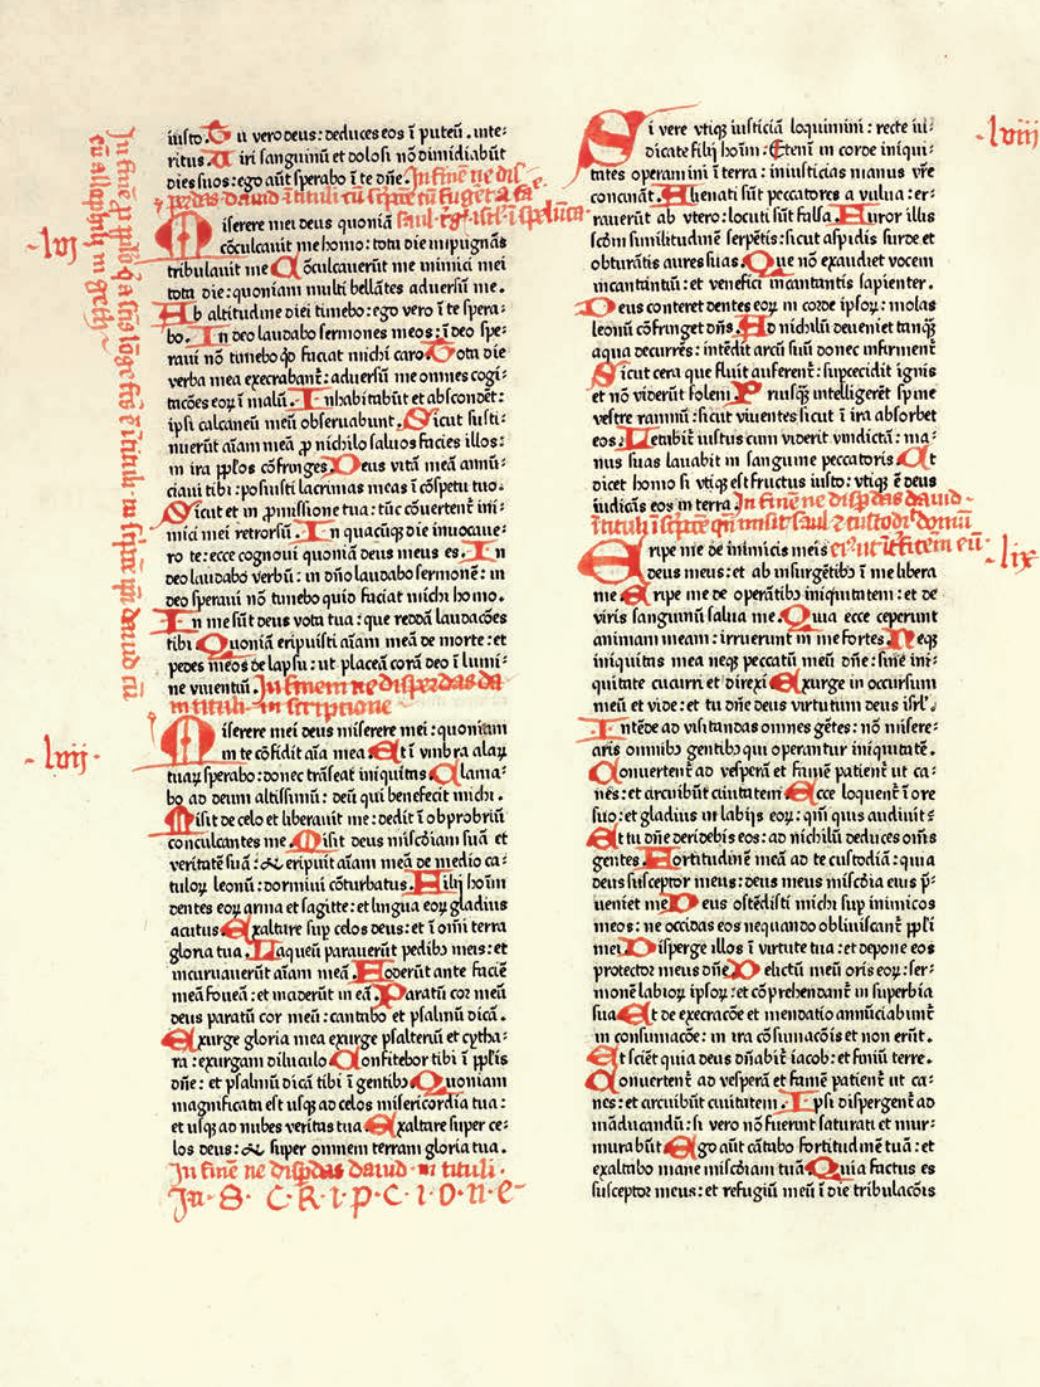 iusto. Tu vero deus: deduces eos ī puteū. inte:
ritus. Viri sanguinū et dolosi nō dimidiabūt
dies suos: ego aūt sperabo ī te dñe. In finē ne dis
perdas dauid ī tituli
Miserere mei deus quoniā
cōculcauit me homo: tota die impugnās
tribulauit me Cōculcauerūt me inimici mei
tota die: quoniam multi bellātes aduersū me.
Ab altitudine diei timebo: ego vero ī te spera:
bo. In deo laudabo sermones meos: ī deo spe:
raui nō timebo qd faciat michi caro. Tota die
verba mea execrabant̄: aduersū me omnes cogi:
tacōes eoꝝ ī malū. Inhabitabūt et abscondēt:
ipsi calcaneū meū obseruabunt. Sicut susti:
nuerūt aīam meā ꝓ nichilo saluos facies illos:
in ira pplos cōfringes. Deus vitā meā annū:
ciaui tibi: posuisti lacrimas meas ī cōspetu tuo.
Sicut et in ꝓmissione tua: tūc cōuertent̄ ini:
mici mei retrorsū. In quacūqꝫ die inuocaue:
ro te: ecce cognoui quoniā deus meus es. In
deo laudabo verbū: in dño laudabo sermonē: in
deo speraui nō timebo quid faciat michi homo.
In me sūt deus vota tua: que reddā laudacōes
tibi Quoniā eripuisti aīam meā de morte: et
pedes meos de lapsu: ut placeā corā deo ī lumi:
ne viuentiū. In finem ne disperdas da
in tituli in scriptione
Miserere mei deus miserere mei: quoniam
in te cōfidit aīa mea. Et ī vmbra alaꝝ
tuaꝝ sperabo: donec trāseat iniquitas. Clama:
bo ad deum altissimū: deū qui benefecit michi.
Misit de celo et liberauit me: dedit ī obprobriū
conculcantes me. Misit deus misc̄diam suā et
veritatē suā: & eripuit aīam meā de medio ca:
tuloꝝ leonū: dormiui cōturbatus. Filij hoīm
dentes eoꝝ arma et sagitte: et lingua eoꝝ gladius
acutus. Exaltare sup celos deus: et ī om̄i terra
gloria tua. Laqueū parauerūt pedibꝫ meis: et
incuruauerūt aīam meā. Foderūt ante faciē
meā foueā: et inciderūt in eā. Paratū cor meū
deus paratū cor meū: cantabo et psalmū dicā.
Exurge gloria mea exurge psalteriū et cytha:
ra: exurgam diluculo Confitebor tibi ī pplis
dñe: et psalmū dicā tibi ī gentibꝫ Quoniam
magnificata est usqꝫ ad celos misericordia tua:
et usqꝫ ad nubes veritas tua. Exaltare super ce:
los deus: & super omnem terram gloria tua.
In finē ne disp̄das dauid in tituli.
In · S · C · R · I · P · C · I · O · N · E
Si vere vtiqꝫ iusticiā loquimini: recte iu:
dicate filij hoīm: Etenī in corde iniqui:
tates operamini ī terra: iniusticias manus vr̄e
concināt. Alienati sūt peccatores a vulua: er:
rauerūt ab vtero: locuti sūt falsa. Furor illis
scdm similitudinē serpētis: sicut aspidis surde et
obturātis aures suas. Que nō exaudiet vocem
incantantiū: et venefici incantantis sapienter.
Deus conteret dentes eoꝝ in corde ipsoꝝ: molas
leonū cōfringet dñs. Ad nichilū deueniet tanqꝫ
aqua decurrēs: intēdit arcū suū donec infirment̄
Sicut cera que fluit auferent̄: supcecidit ignis
et nō viderūt solem. Priusqꝫ intelligerēt spine
vestre ramnū: sicut viuentes sicut ī ira absorbet
eos: Letabit̄ iustus cum viderit vindictā: ma:
nus suas lauabit in sanguine peccatoris. Et
dicet homo si vtiqꝫ est fructus iusto: vtiqꝫ ē deus
iudicās eos in terra. In finē ne disp̄das dauid
Eripe me de inimicis meis
deus meus: et ab insurgētibꝫ ī me libera
me. Eripe me de operātibꝫ iniquitatem: et de
viris sanguinū salua me. Quia ecce ceperunt
animam meam: irruerunt in me fortes. Neqꝫ
iniquitas mea neqꝫ peccatū meū dñe: sine ini:
quitate cucurri et direxi Exurge in occursum
meū et vide: et tu dñe deus virtutum deus isrl̄.
Intēde ad visitandas omnes gētes: nō misere:
aris omnibꝫ gentibꝫ qui operantur iniquitatē.
Conuertent̄ ad vesperā et famē patient̄ ut ca:
nes: et circuibūt ciuitatem. Ecce loquent̄ ī ore
suo: et gladius in labijs eoꝝ: qm̄ quis audiuit:
Et tu dñe deridebis eos: ad nichilū deduces om̄s
gentes. Fortitudinē meā ad te custodiā: quia
deus susceptor meus: deus meus misc̄dia eius p̄:
ueniet me Deus ostēdisti michi sup inimicos
meos: ne occidas eos nequando obliuiscant̄ ppli
mei. Disperge illos ī virtute tua: et depone eos
protector meus dñe. Delictū meū oris eoꝝ: ser:
monē labioꝝ ipsoꝝ: et cōprehendant̄ in superbia
sua Et de execracōe et mendatio annūciabunt̄
in consumacōe: in ira cōsumacōis et non erūt.
Et sciēt quia deus dñabit̄ iacob: et finiū terre.
Conuertent̄ ad vesperā et famē patient̄ ut ca:
nes: et circuibūt ciuitatem. Ipsi dispergent̄ ad
māducandū: si vero nō fuerint saturati et mur:
murabūt Ego aūt cātabo fortitudinē tuā: et
exaltabo mane misc̄diam tuā Quia factus es
susceptor meus: et refugiū meū ī die tribulacōis
lvj
lvij
lviij
lix